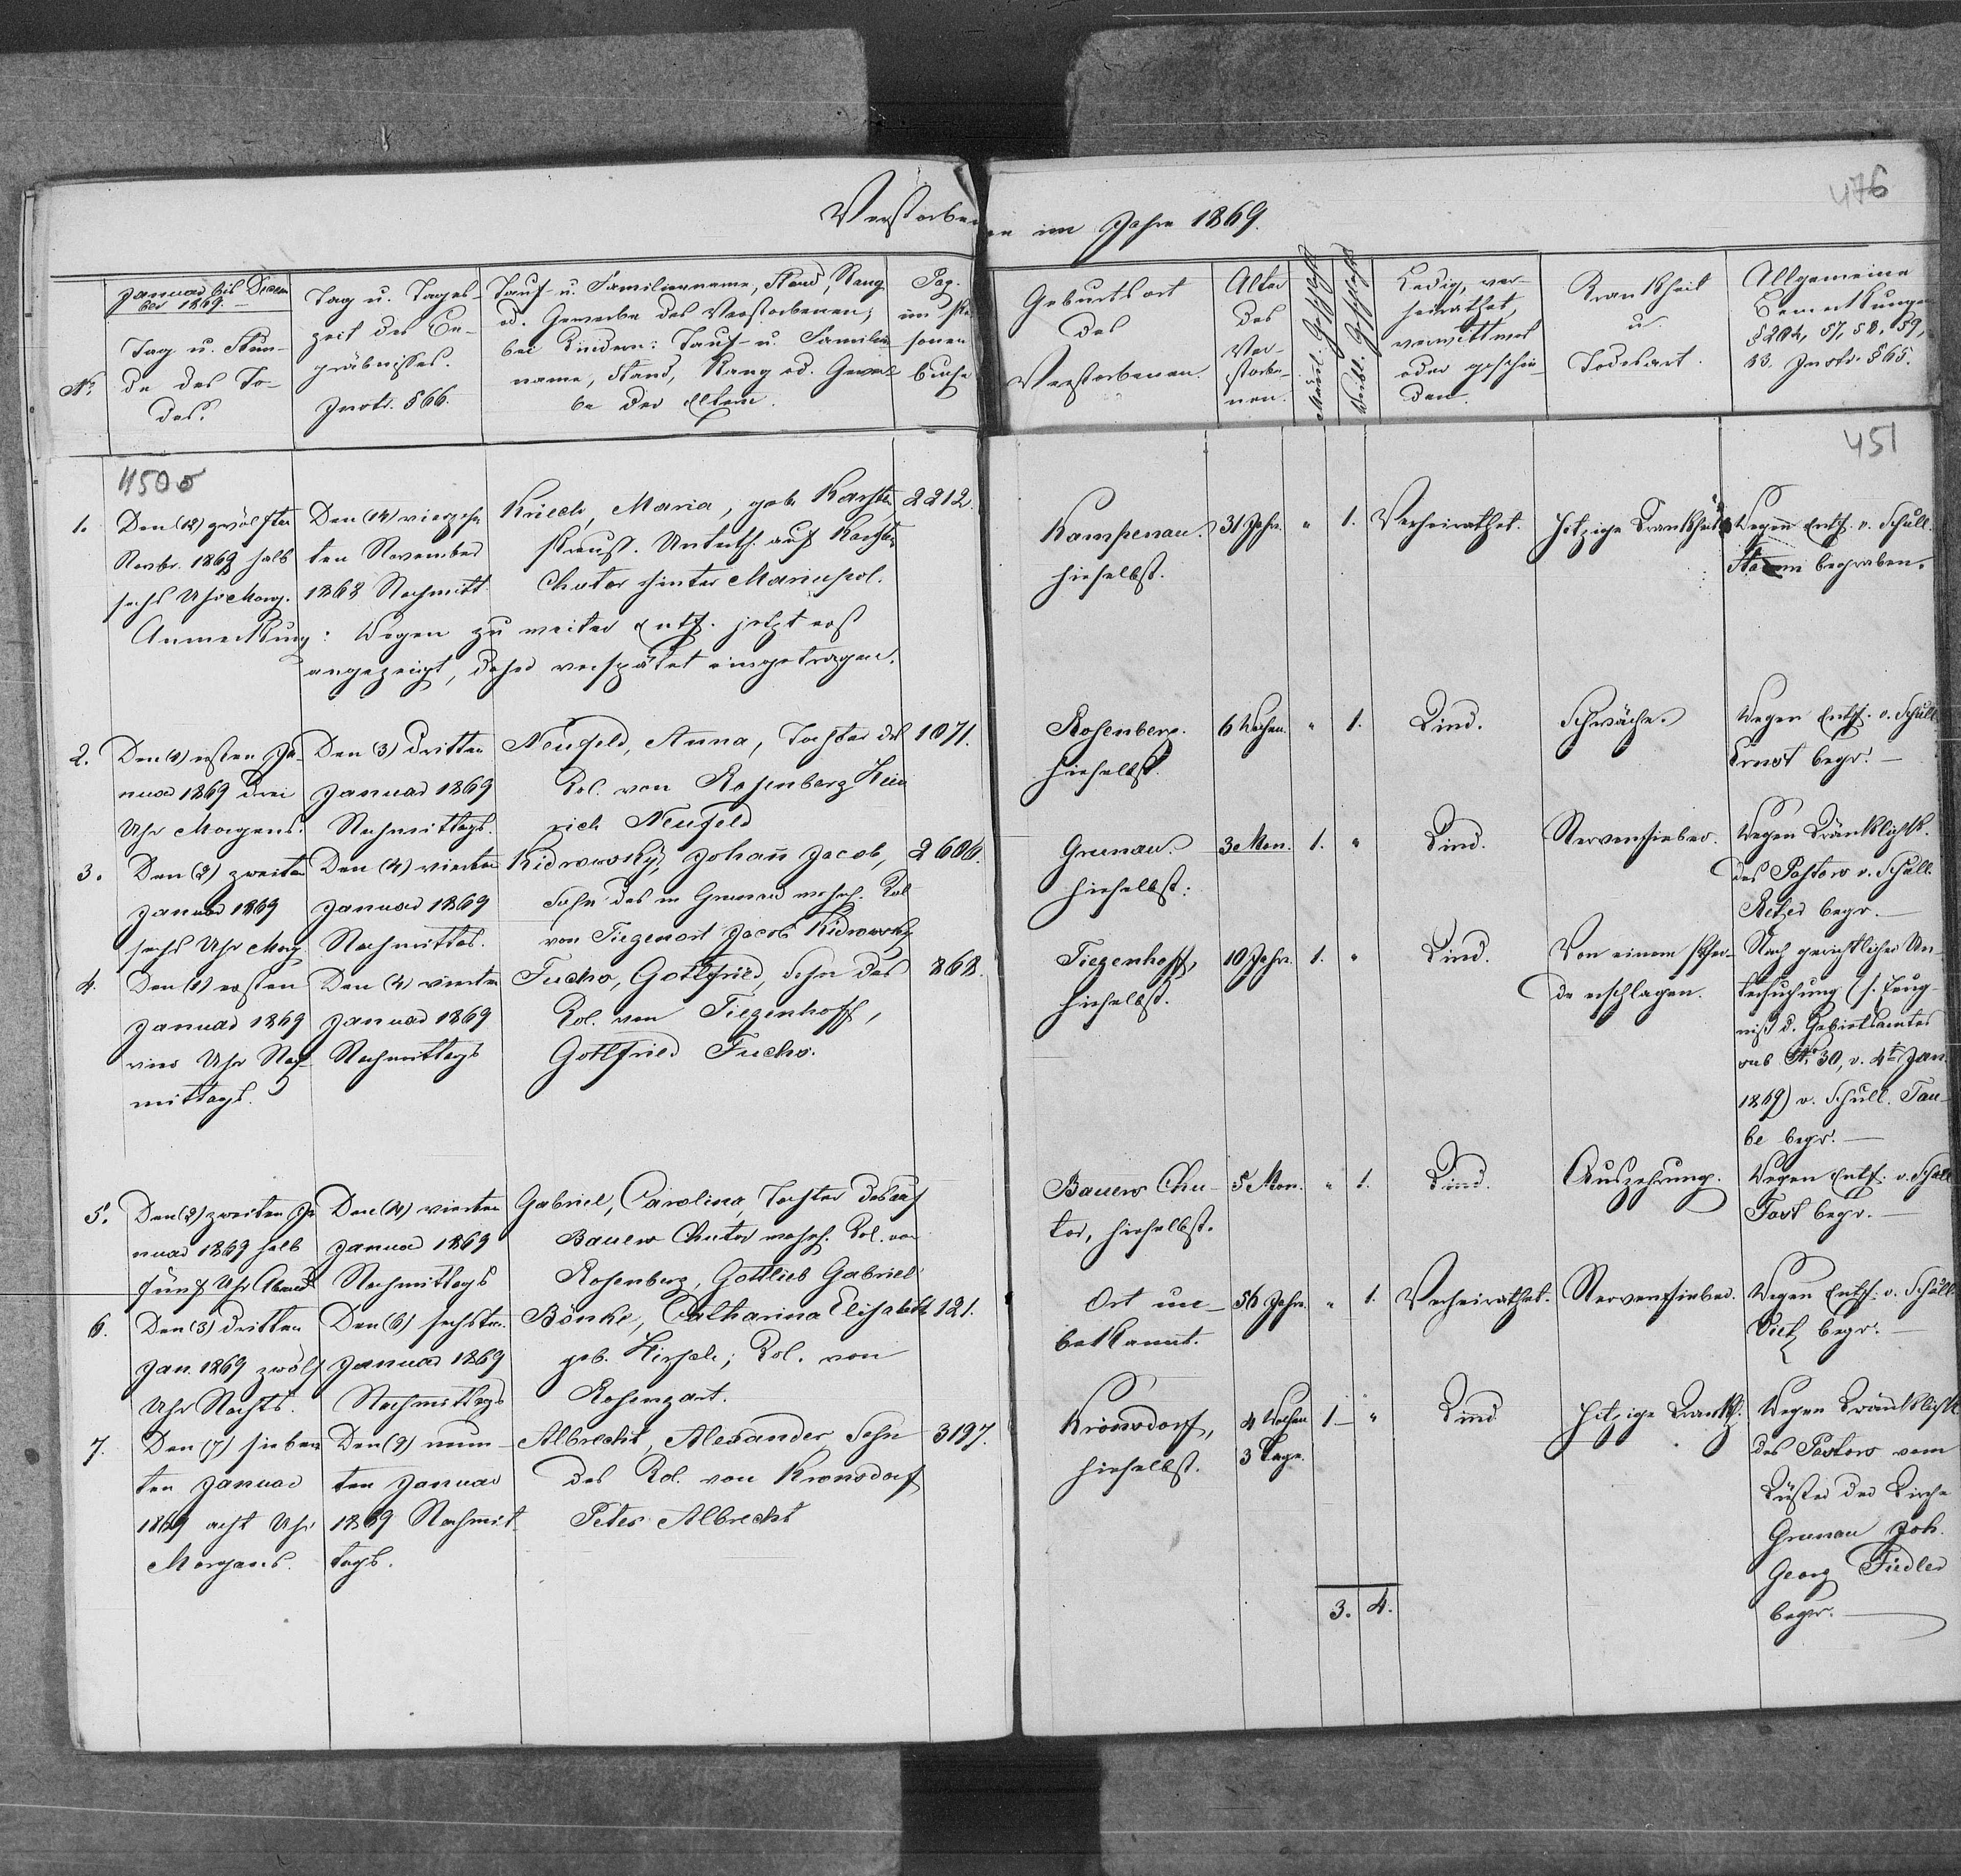 476
Verstorbenen im Jahre 1869.
No.
Januar bis Decem
ber 1869.
Tag u. Stun-
de des To-
des.
Tag u. Tages-
zeit des Be-
gräbnisses.
Instr. §66.
Tauf- u. Familienname, Stand, Rang
od. Gewerbe des Verstorbenen;
bei Kindern: Tauf- u. Familien
name, Stand, Rang od. Gewer
be der Eltern.
Pag.
im Per
sonen
buche
Geburtsort
des
Verstorbenen.
Alter
des
Ver-
storbe-
nen.
Männl. Geschlecht
Weibl. Geschlecht
Ledig, ver-
heirathet,
verwittwet
oder geschie-
den.
Krankheit
u.
Todesart.
Allgemeine
Bemerkungen
57, 58, 59,
Instr. §65.
450
451
1.
Den (12) zwölften
Novbr. 1868 halb
sechs Uhr Morg.
Den (14) vierzehn
ten November
1868 Nachmitt
Kriech, Maria, geb. Karsten
Preuß. Unterth. auf Karsten
Chutor hinter Mariupol.
2212.
Kampenau.
hieselbst.
31 Jahr.
"
1.
Verheirathet.
Hitzige Krankheit
Wegen Entf. v. Schull.
Stamm begraben.
Anmerkung: Wegen zu weiter Entf. jetzt erst
angezeigt, daher verspätet eingetragen.
2.
Den (1) ersten Ja-
nuar 1869 drei
Uhr Morgens.
Den (3) dritten
Januar 1869
Nachmittags.
Neufeld, Anna, Tochter des
Kol. von Rosenberg Hein
rich Neufeld
1071.
Rosenberg.
hieselbst.
6 Wochen.
"
1.
Kind.
Schwäche.
Wegen Entf. v. Schull.
Ernst begr. —
3.
Den (2) zweiten
Januar 1869
sechs Uhr Morg.
Den (4) vierten
Januar 1869
Nachmittas.
Kidrowsky, Johann Jacob,
Sohn des in Grunau wohnh. Kol
von Tiegenort Jacob Kidrowsky
2606.
Grunau.
hieselbst:
3 Mon.
1.
"
Kind.
Nervenfieber.
Wegen Kränklichk.
des Pastors v. Schull.
Retzer begr. —
4.
Den (1) ersten
Januar 1869
vier Uhr Nach-
mittags.
Den (4) vierten
Januar 1869
Nachmittags
Fuchs, Gottfried, Sohn des
Kol. von Tiegenhoff,
Gottfried Fuchs.
868.
Tiegenhoff,
hieselbst.
10 Jahr.
1.
"
Kind.
Von einem Pfer-
de erschlagen.
Nach gerichtlicher Un-
tersuchung (s. Zeug-
niß d. Gebietsamtes
sub No. 30, v. 4t Jan.
1869) v. Schull. Tau-
be begr. —
5.
Den (2) zweiten Ja
nuar 1869 halb
fünf Uhr Abends
Den (4) vierten
Januar 1869
Nachmittags
Gabriel, Carolina, Tochter des auf
Bauers Chutor wohnh. Kol. von
Rosenberg, Gottlieb Gabriel
Bauers Chu-
tor, hieselbst.
5 Mon.
"
1.
Kind.
Auszehrung.
Wegen Entf. v. Schull
Fast begr. —
6.
Den (3) dritten
Jan. 1869 zwölf
Uhr Nachts.
Den (6) sechsten
Januar 1869
Nachmittags
Bönke, Catharina Elisabeth
geb. Hirsch; Kol. von
Rosengart.
121.
Ort un-
bekannt.
56 Jahr.
"
1.
Verheirathet.
Nervenfieber.
Wegen Entf. v. Schull
Dietz begr. —
7.
Den (7) sieben
ten Januar
1869 acht Uhr
Morgens.
Den (9) neun-
ten Januar
1869 Nachmit-
tags.
Albrecht, Alexander, Sohn
des Kol. von Kronsdorf
Peter Albrecht
3197.
Kronsdorf,
hieselbst.
4 Wochen
3 Tage.
1.
"
Kind
Hitzige Krankh.
Wegen Kränklichk
des Pastors vom
Küster der Kirche
Grunau Joh.
Georg Fiedler
begr. —
3.
4.